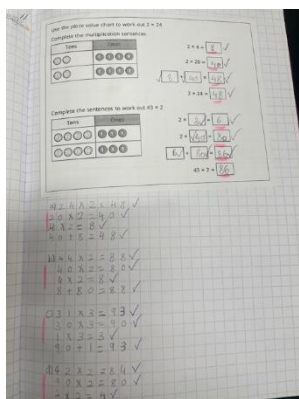 Use the place value chart to work out 2 × 24
Complete the multiplication sentences.
Tens Ones
2 × 4 = 8 ✓
2 × 20 = 40 ✓
8 + 40 = 48 ✓
2 × 24 = 48 ✓
Complete the sentences to work out 43 × 2
Tens Ones
2 × 3 = 6 ✓
2 × 40 = 80 ✓
6 + 80 = 86 ✓
43 × 2 = 86
a) 24 × 2 = 48 ✓
20 × 2 = 40 ✓
4 × 2 = 8 ✓
40 + 8 = 48 ✓
b) 44 × 2 = 88 ✓
40 × 2 = 80 ✓
4 × 2 = 8 ✓
8 + 80 = 88 ✓
c) 31 × 3 = 93 ✓
30 × 3 = 90 ✓
1 × 3 = 3 ✓
90 + 1 = 93 ✓
d) 42 × 2 = 84 ✓
90 × 2 = 80 ✓
× 2 = 4 ✓